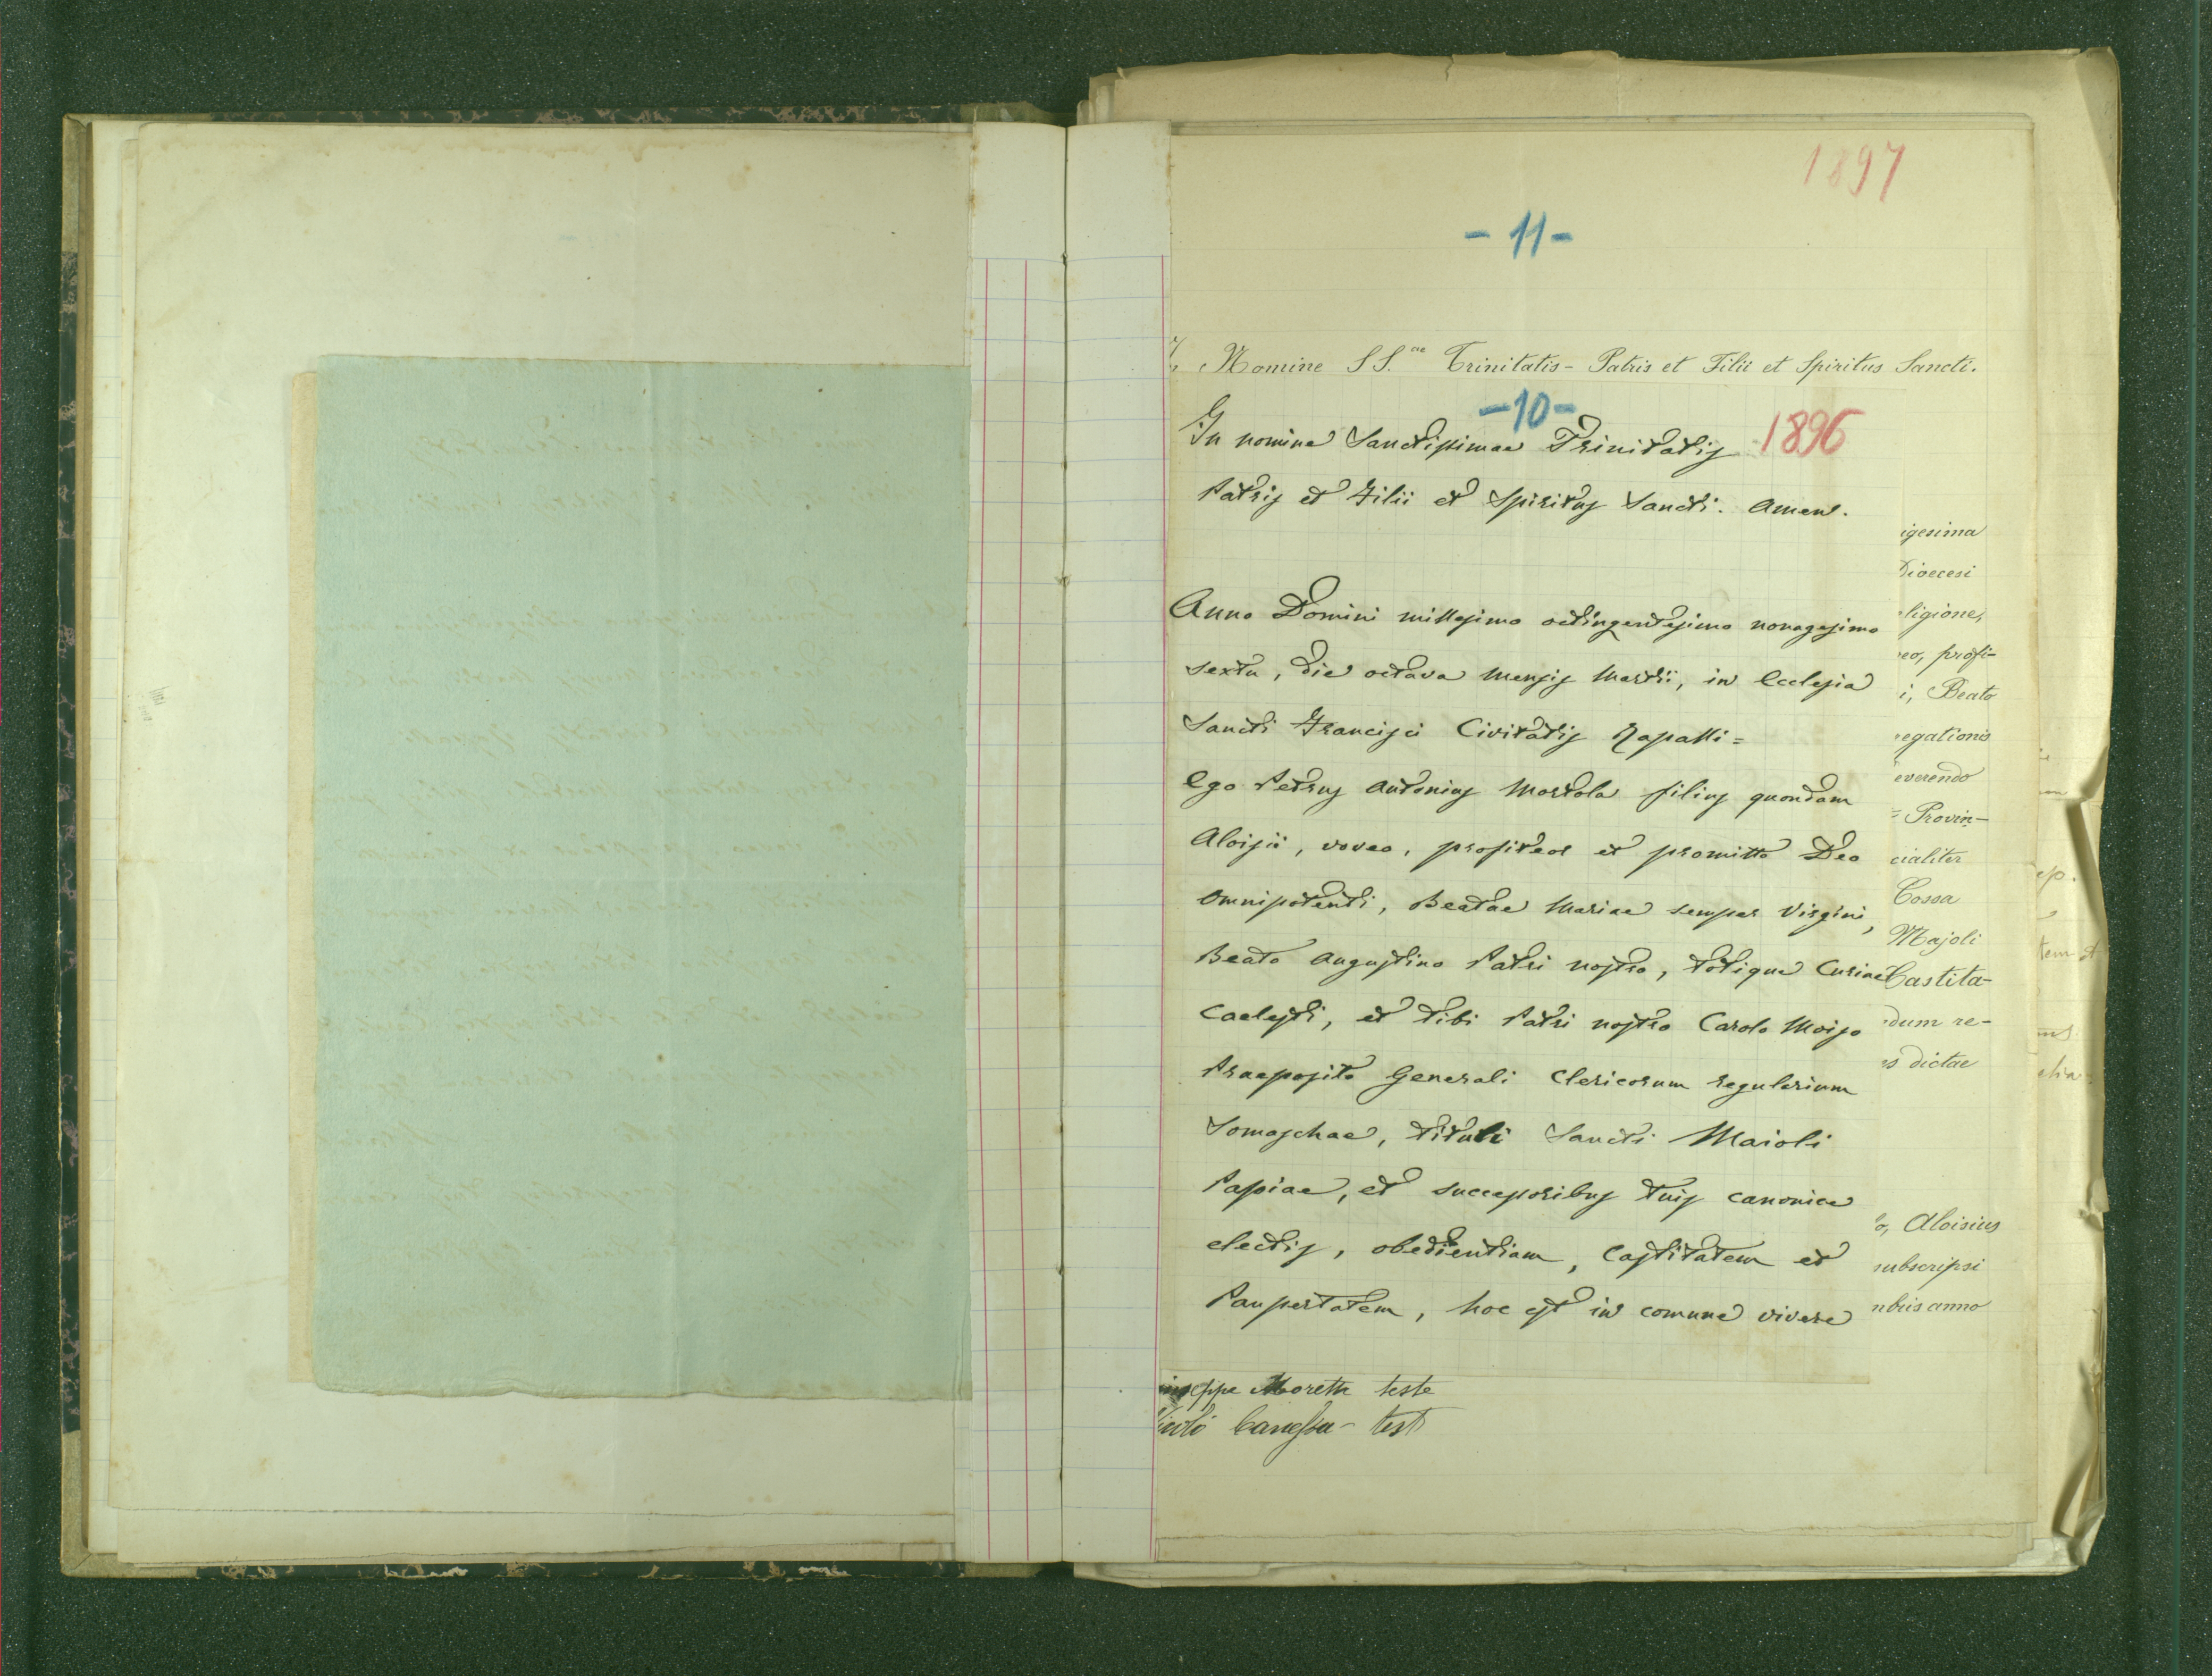 1897
- 11 -
Nomine SS.ae Trinitatis - Patris et Filii et Spiritus Sancti.
- 10 -
1896
In nomine Sanctissimae Trinitatis
Patris et Filii et Spiritus Sancti. Amen.
Anno Domini millesimo octingentesimo nonagesimo
sexto, die octava mensis Martii, in Ecclesia
Sancti Francisci Civitatis Rapalli =
Ego Petrus Antonius Mortola filius quondam
Aloisii, voveo, profiteor et promitto Deo
Omnipotenti, Beatae Mariae semper Virgini,
Beato Augustino Patri nostro, totique Curiae
Caelesti, et tibi Patri nostro Carolo Moizo
Praeposito Generali Clericorum regularium
Somaschae, tituli Sancti Maioli
Papiae, et successoribus tuis canonice
electis, obedientiam, Castitatem et
Paupertatem, hoc est in comune vivere
igesima
Dioecesi
ligione,
eo, profi-
i, Beato
egationis
everendo
= Provin-
cialiter
Cossa
Majoli
Castita-
dum re-
s dictae
o, Aloisius
subscripsi
mbris anno
useppe Moretti teste
icolò Canessa - test